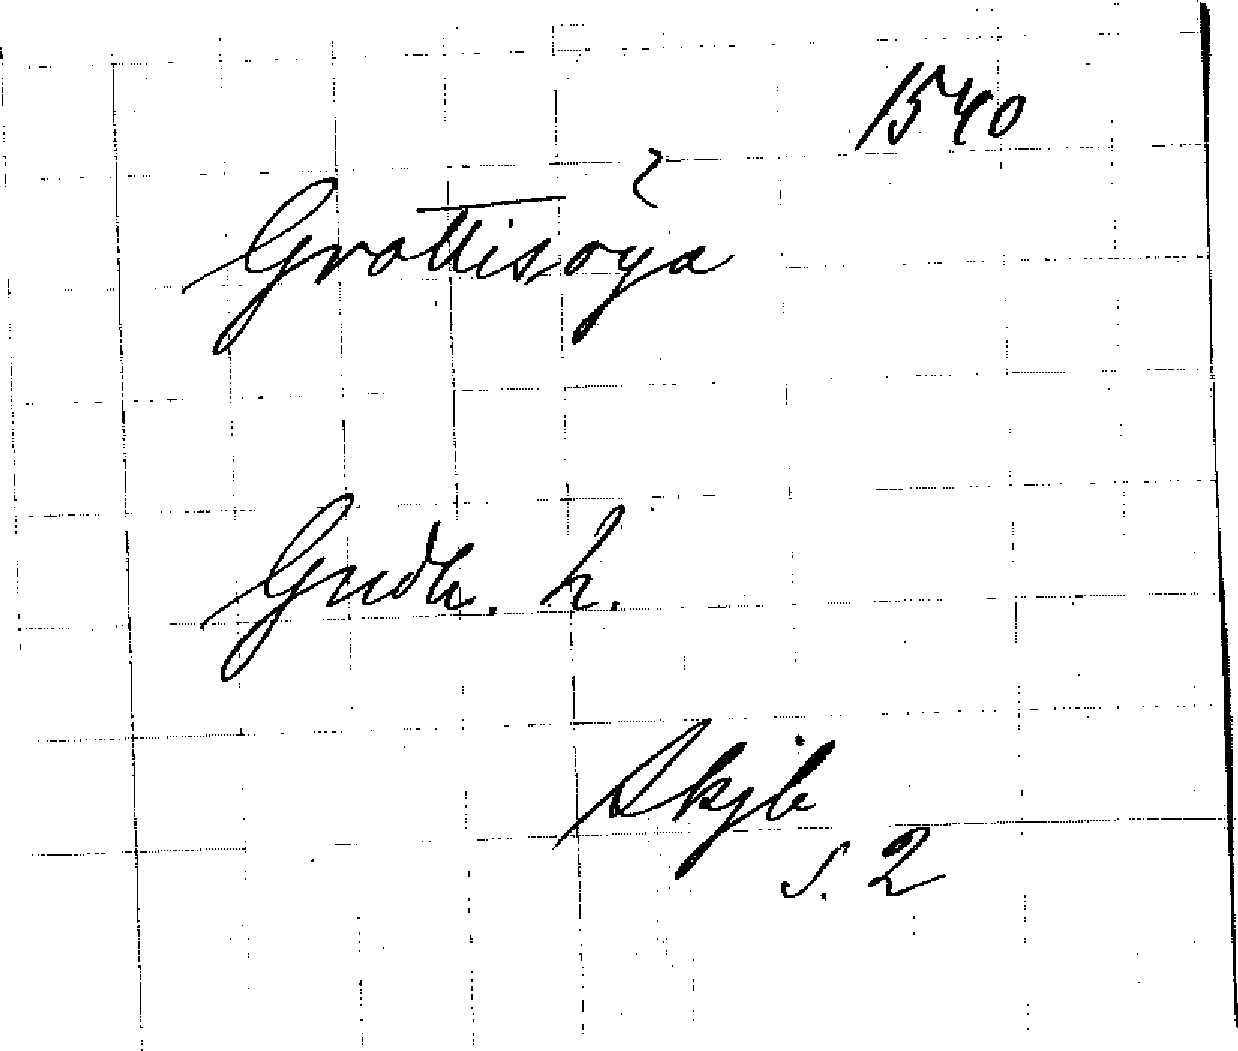 1540
Grottisøya
Gudbr. h.
Skjb
s. 2